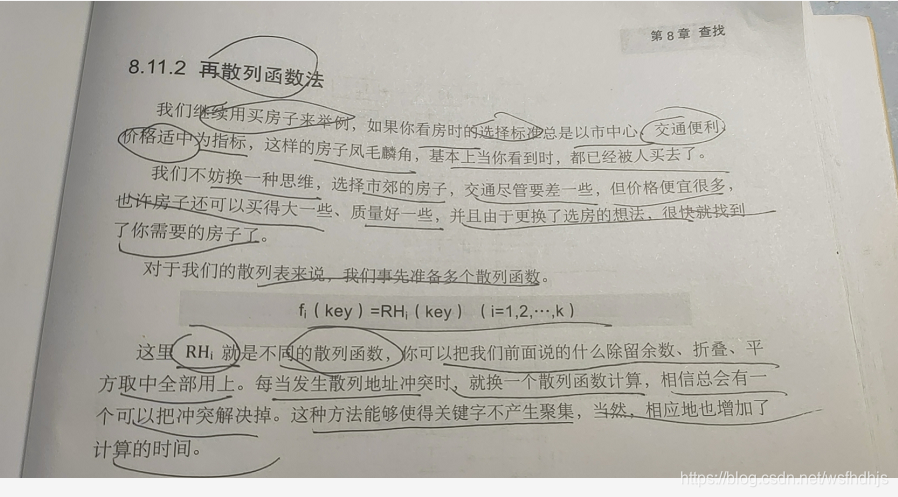 第 8 章 查找
8.11.2 再散列函数法
我们继续用买房子来举例，如果你看房时的选择标准总是以市中心、交通便利、
价格适中为指标，这样的房子凤毛麟角，基本上当你看到时，都已经被人买去了。
我们不妨换一种思维，选择市郊的房子，交通尽管要差一些，但价格便宜很多，
也许房子还可以买得大一些、质量好一些，并且由于更换了选房的想法，很快就找到
了你需要的房子了。
对于我们的散列表来说，我们事先准备多个散列函数。
fᵢ（key）=RHᵢ（key）（i=1,2,…,k）
这里 RHᵢ 就是不同的散列函数，你可以把我们前面说的什么除留余数、折叠、平
方取中全部用上。每当发生散列地址冲突时，就换一个散列函数计算，相信总会有一
个可以把冲突解决掉。这种方法能够使得关键字不产生聚集，当然，相应地也增加了
计算的时间。
https://blog.csdn.net/wsfhdhjs